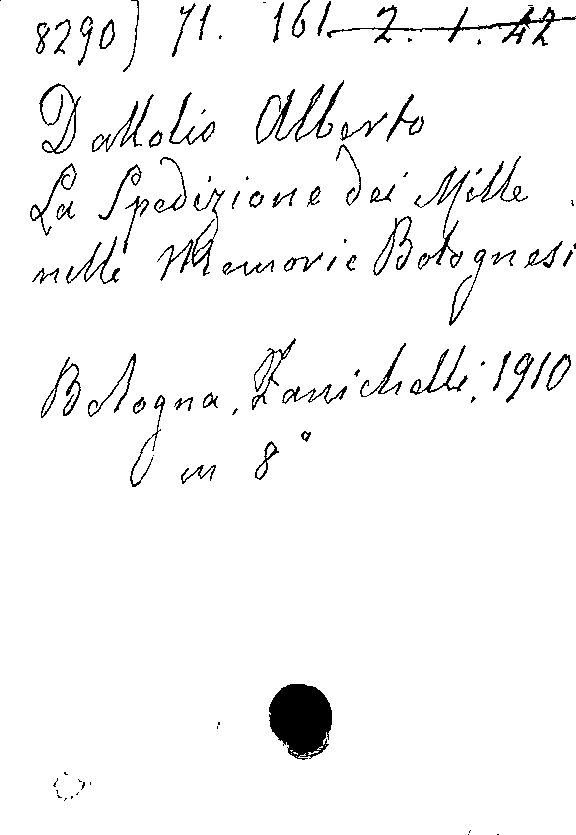 8290) 71. 161. 2. 1. 42
Dallolio Alberto
La Spedizione dei Mille
nelle Memorie Bolognesi
Bologna, Zanichelli, 1910
in 8°